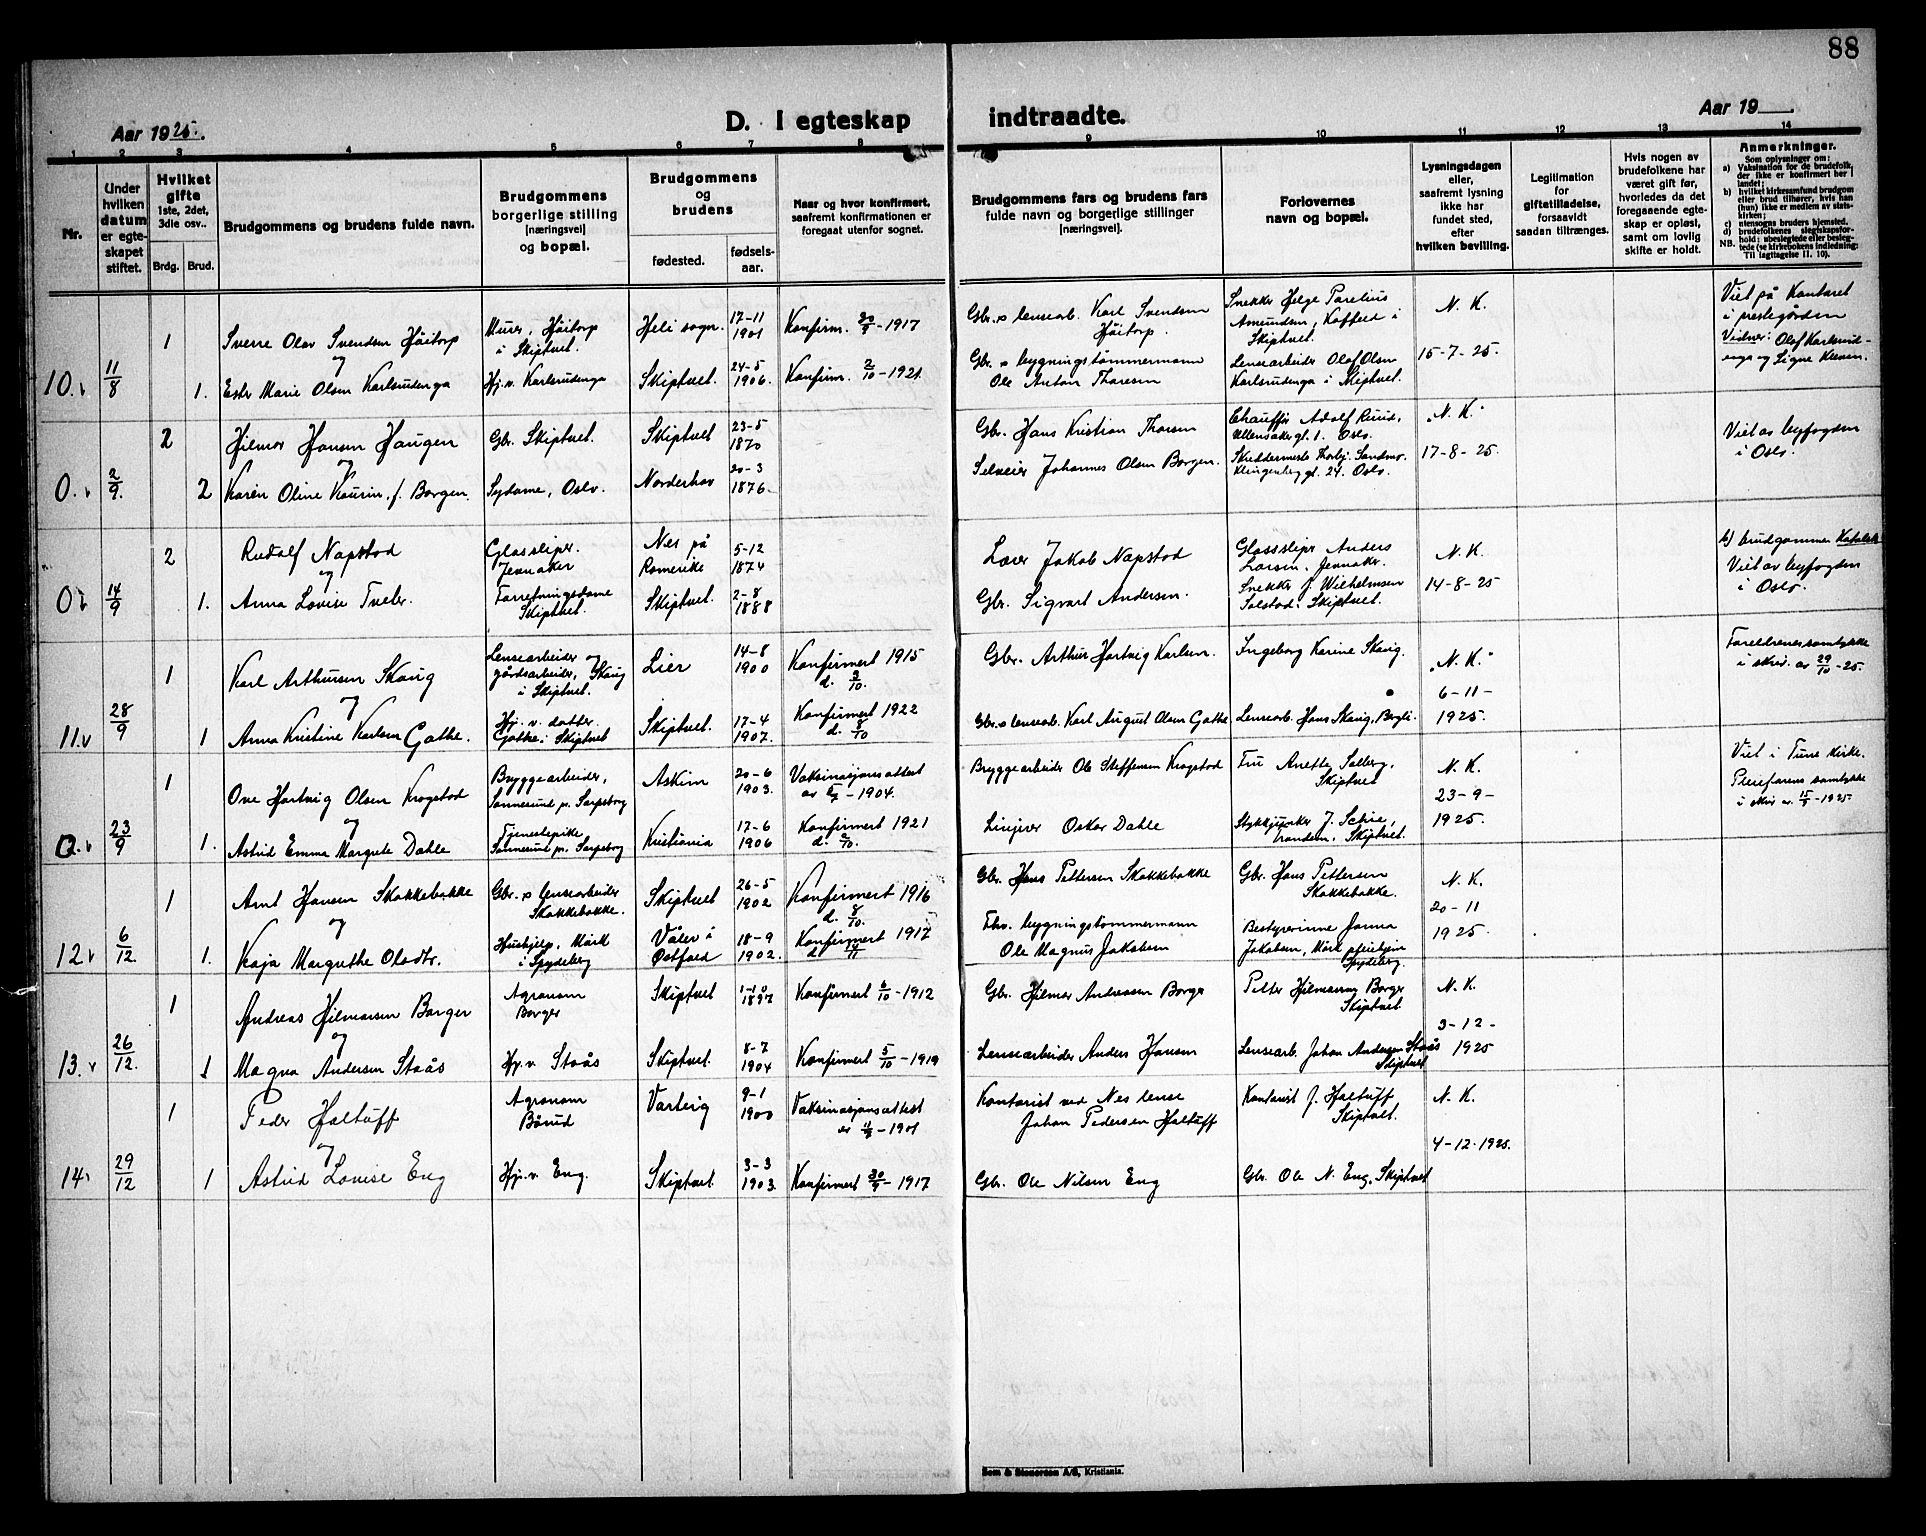 88
Aar 1925.
D. I egteskap indtraadte.
Aar 19
1 2 3 4 5 6 7 8 9 10 11 12 13 14
Nr.
Under hvilken datum er egteskapet stiftet.
Hvilket gifte 1ste, 2det, 3die osv..
Brdg. Brud.
Brudgommens og brudens fulde navn.
Brudgommens borgerlige stilling [næringsvei] og bopæl.
Brudgommens og brudens
fødested.
fødselsaar.
Naar og hvor konfirmert, saafremt konfirmationen er foregaat utenfor sognet.
Brudgommens fars og brudens fars fulde navn og borgerlige stillinger [næringsvei].
Forlovernes navn og bopæl.
Lysningsdagen eller, saafremt lysning ikke har fundet sted, efter hvilken bevilling.
Legitimation for giftetilladelse, forsaavidt saadan tiltrænges.
Hvis nogen av brudefolkene har været gift før, hvorledes da det foregaaende egteskap er opløst, samt om lovlig skifte er holdt.
Anmerkninger.
Som oplysninger om:
a) Vaksination for de brudefolk, der ikke er konfirmert her i landet;
b) hvilket kirkesamfund brudgom eller brud tilhører, hvis han (hun) ikke er medlem av statskirken;
c) utensogns bruders hjemsted.
d) brudefolkenes slegtskapsforhold: ubeslegtede eller beslegtede (se kirkebokens indledning:
NB. Til iagttagelse II. 10).
1 Sverre Olav Svendsen Høitorp Murer, Høitorp i Skiptvet. Heli sogn. 17-11 1901 Konfirm. 30/9 - 1917 Gbr. & lensearb. Karl Svendsen Høitorp. Snekker Helge Parelius Amundsen, Kaffeld i Skiptvet. N. K. Viet på Kontoret i prestegården
og
10. 11/8 1. Ester Marie Olsen Karlsrudenga Hj.v. Karlsrudenga Skiptvet 24-5 1906. Konfirm. 2/10 - 1921. Gbr. & bygningstømmermann Ole Anton Thoresen Lensearbeider Olaf Olsen Karlsrudenga i Skiptvet. 15-7-25. Vidner: Olaf Karlsrudenga og Signe
2 Hilmar Hansen Haugen Gbr. Skiptvet. Skiptvet 23-5 1870 Gbr. Hans Kristian Thorsen Chauffør Adolf Ruud, Ullensaker gt. 1. Oslo. "N. K." Viet av byfogden i Oslo.
og
0. 2/9. 2 Karen Oline Kaurin, f. Borgen. Sydame, Oslo. Norderhov 20-3 1876. Selveier Johannes Olsen Borgen. Skreddermester Thorbj. Sandmo. Klingenberg gt. 24. Oslo. 17-8-25.
2 Rudolf Napstad Glassliper. Jevnaker Nes på Romerike 5-12 1874 Lærer Jakob Napstad Glassliper Anders Larsen, Jevnaker. N. K. b) brudgommen Katolsk Viet av byfogden i Oslo.
og
0 14/9 1. Anna Lovise Tveter. Forretningsdame Skiptvet. Skiptvet. 2-8 1888 Gbr. Sigvart Andersen. Snekker J. Wilhelmsen Solstad. Skiptvet. 14-8-25
1 Karl Arthursen Skaug Lensearbeider og gårdsarbeider, Skaug i Skiptvet. Lier 14-8 1900 Konfirmert 1915 d. 3/10. Gbr. Arthur Hartvig Karlsen. Ingeborg Karine Skaug. "N. K." Foreldrenes samtykke i skriv. av 29/10 - 25.
og
11. 28/9 1 Anna Kristine Karlsen Gathe. Hj. v. datter. Gathe i Skiptvet Skiptvet. 17-4 1907. Konfirmert 1922 d. 8/10. Gbr. & lensearb. Karl August Olsen Gathe Lensearb. Hans Skaug, 6-11-1925.
1 Ove Hartvig Olsen Krogstad Bryggearbeider, Sannesund pr. Sarpsborg Askim 20-6 1903. Vaksinasjonsattest av 5/7 - 1904. Bryggearbeider Ole Steffensen Krogstad Fru Anette Solberg, Skiptvet N. K. Viet i Tune kirke.
og
0. 23/9 1. Astrid Emma Margrete Dahle Tjenestepike Sannesund pr. Sarpsborg Kristiania 17-6 1906 Konfirmert 1921 d. 2/10. Linjeer Oskar Dahle Stykkjunker J. Schie, Trandem, Skiptvet. 23-9-1925. Pleiefarens samtykke i skriv av 15/9 - 1925.
1 Arnt Hansen Skakkebakke Gbr. & lensearbeider Skakkebakke. Skiptvet 26-5 1902 Konfirmert 1916 d. 8/10. Gbr. Hans Pettersen Skakkebakke Gbr. Hans Pettersen Skakkebakke. N. K.
og
12 6/12. 1. Kaja Margrethe Olsdtr. Hushjelp, Mørk i Spydeberg Våler i Østfold 18-9 1902. Konfirmert 1917 d. 14/11 Fhv. bygningstømmermann Ole Magnus Jakobsen Bestyrerinne Janna Jakobsen, Mørk pleiehjem Spydeberg. 20-11 1925.
1 Andreas Hilmarsen Borger Agronom Borger Skiptvet 1-10 1897 Konfirmert 6/10 - 1912 Gbr. Hilmar Andreassen Borger Petter Hilmarsen Borger Skiptvet. N. K.
og
13. 26/12. 1 Magna Andersen Staås Hj. v. Staås Skiptvet. 8-7 1904 Konfirmert 5/10 - 1919 Lensearbeider Anders Hansen Lensearb. Johan Andersen Staås Skiptvet 3-12-1925
1 Peder Haltuff Agronom Bånud Varteig 9-1 1900 Vaksinasjonsattest av 11/9 - 1901 Kontorist ved Nes lense Johan Pedersen Haltuff Kontorist J. Haltuff, Skiptvet. N. K.
og
14. 29/12 1 Astrid Lovise Eng Hj. v. Eng. Skiptvet. 3-3 1903. Konfirmert 30/9 - 1917 Gbr. Ole Nilsen Eng Gbr. Ole N. Eng, Skiptvet 4-12-1925.
Sem & Stenersen A/S, Kristiania.